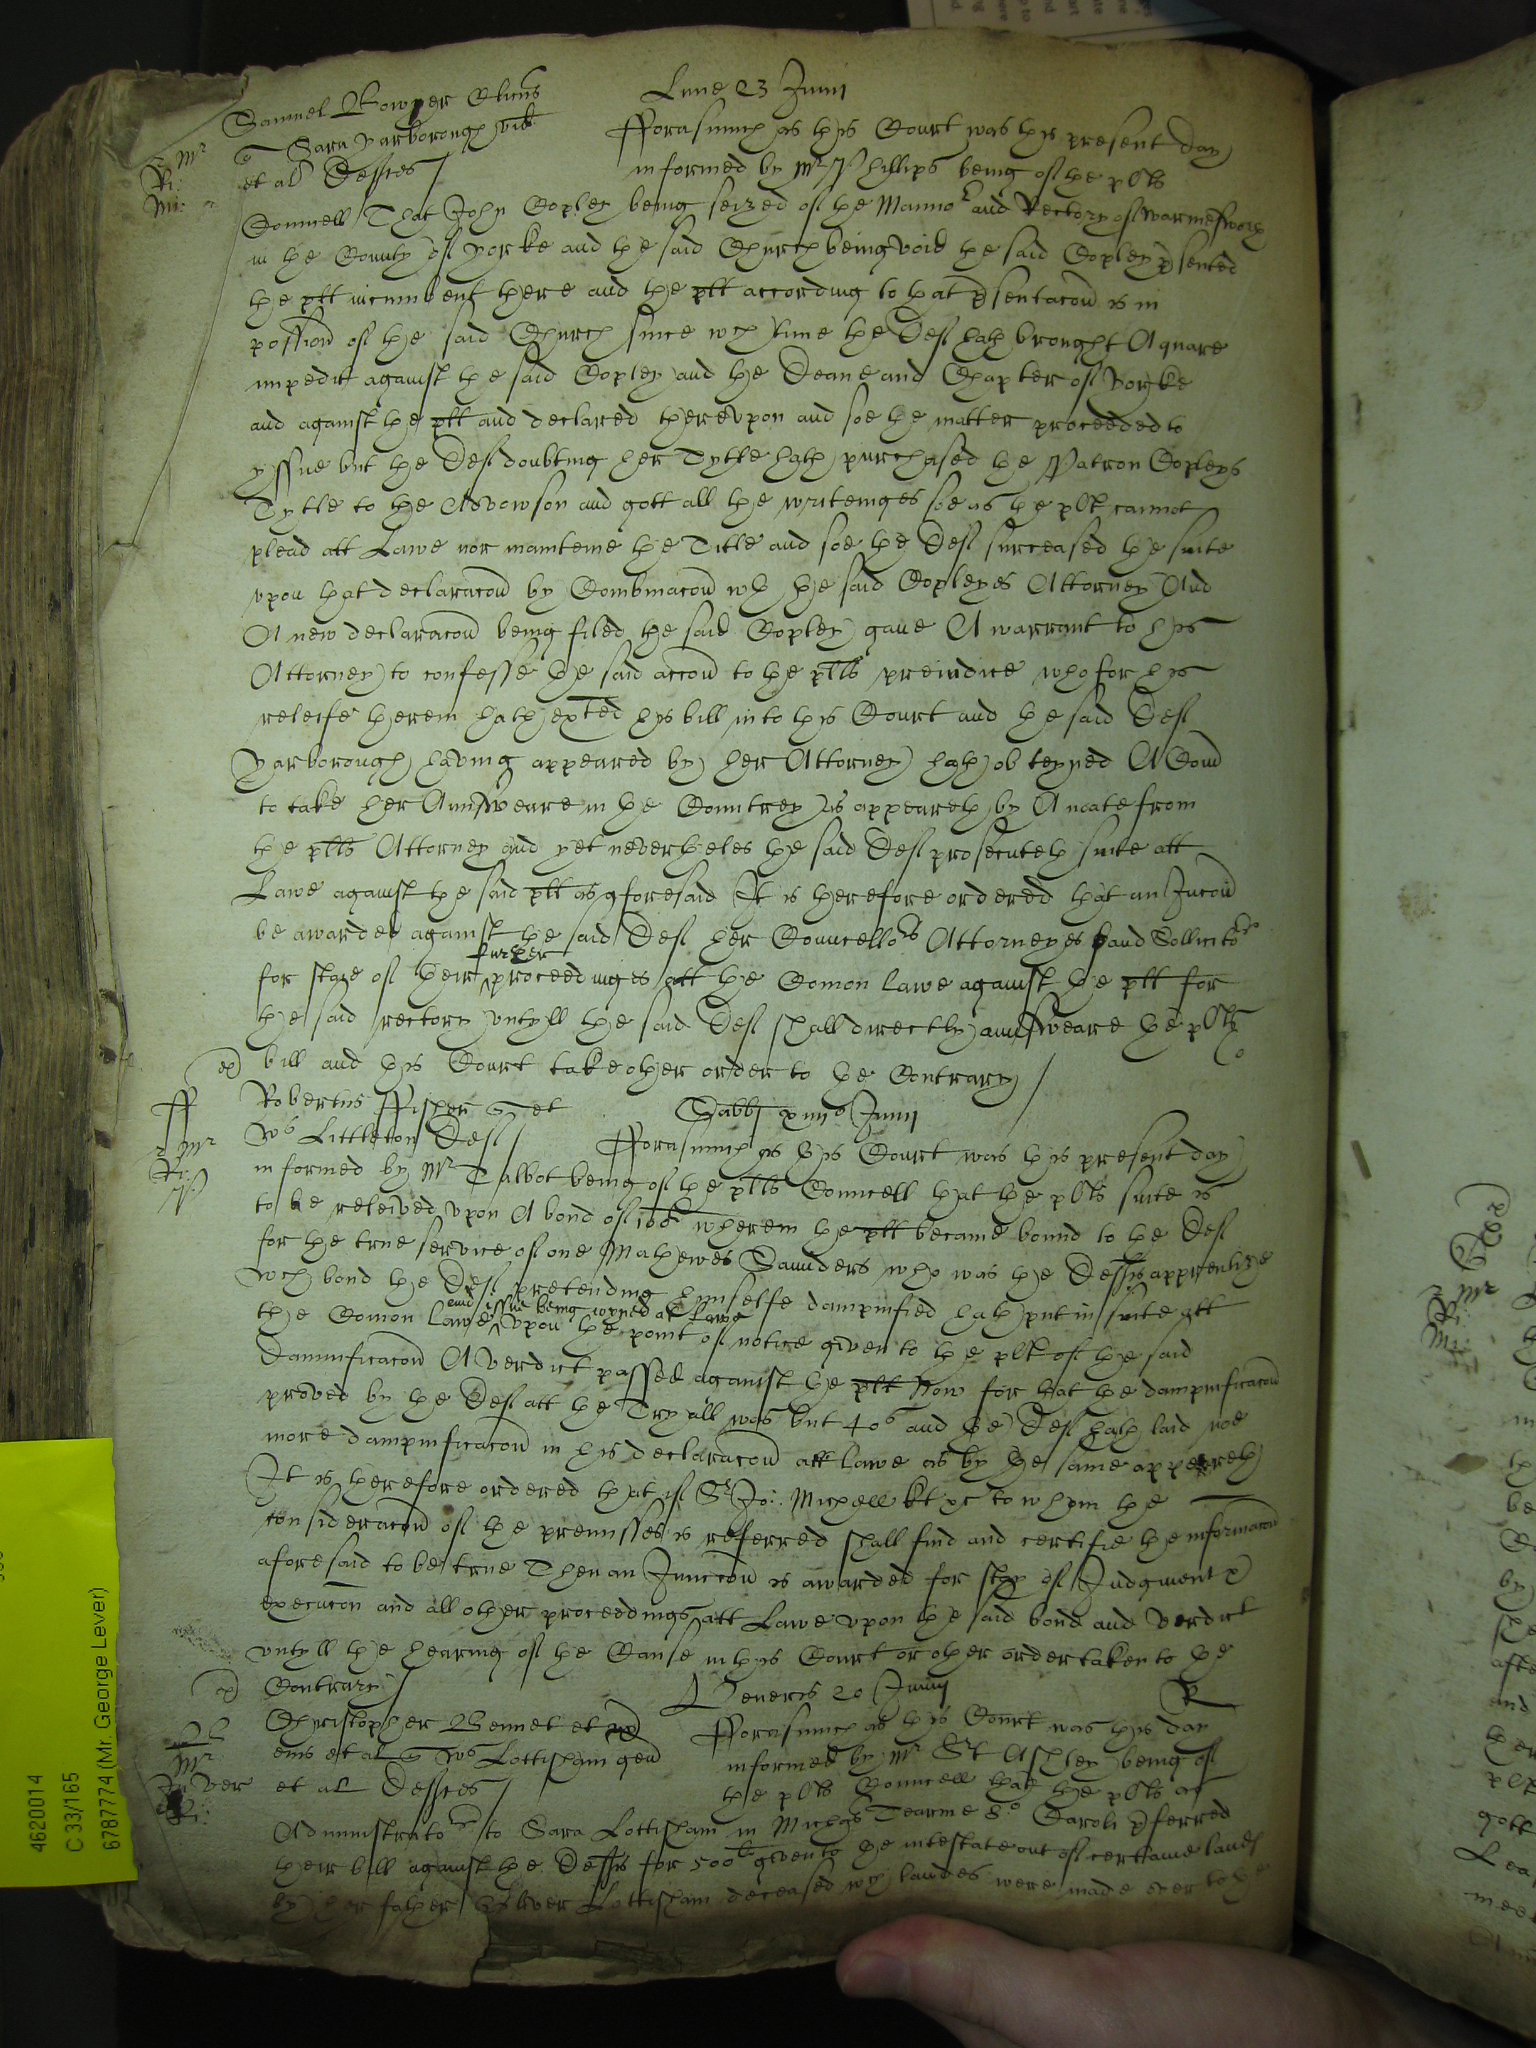 Samuel Bowyer Clicus
Lune 23 Junii
v Sara Yarborough vid
et al Deftes
Mr
Ri:
Mi:
fforasmuch as this Court was this present day
informed by Mr Phillips being of the plts
Councell That John Copley being seized of the Manno^r and Rectory of Warmesworth
in the County of Yorke and the said Church being void the said Copley psented
the plt incumbent there and the plt according to that psentacon is in
possion of the said Church since wch time the Deft hath brought A quare
impedit against the said Copley and the Deane and Chapter of Yorke
and against the plt and declared therevpon and soe the matter proceeded to
yssue but the Deft doubting her Tytle hath purchased the Patron Copleys
Tytle to the Advowson and gott all the writeinges soe as the plt cannot
plead att Lawe nor mainteine the Title and soe the Deft surceased the suite
vpon that declaracon by Combinacon wth the said Copleyes Attorney And
A new declaracon being filed the said Copley gaue A warrant to his
Attorney to confesse the said accon to the plts preiudice who for his
releife therein hath exted his bill into this Court and the said Deft
Yarborough having appeared by her Attorney hath obteyned A Com
to take her Aunsweare in the Countrey as appeareth by A noate from
the plts Attorney and yet neverthelés the said Deft prosecuteth suite att
Lawe against the said plt as aforesaid It is therefore ordered that an Iniuccon
be awarded against the said Deft her Councello^rs Attorneyes and Sollicito^rs
further
for staye of their proceedinges att the Comon Lawe against the plt for
the said rectory vntyll the said Deft shall directly aunsweare the plts
bill and this Court take other order to the Contrary
ex
Robertus ffisher q et
Sabbi xiiiio Junii
ff
Wm Littleton Deft
Mr
Ri:
fforasmuch as this Court was this present day
informed by Mr Talbot being of the plts Councell that the plts suite is
to be releived vpon A bond of 100l wherein the plt became bound to the Deft
for the true service of one Mathewes Saunders who was the Defts apprentize
wch bond the Deft pretending himselfe dampnified hath put in suite att
and issue being ioyned at Lawe
the Comon Lawe vpon the point of notice given to the plt of the said
Damnificacon A verdict passed against the plt Now for that the dampnificacon
proved by the Deft att the Tryall was but 40s and the Deft hath laid noe
more dampnificacon in his declaracon att lawe as by the same appeareth
It is therefore ordered that if Sr Jo: Michell kt xc to whom the
consideracon of the premisses is referred shall find and certifie the informacon
aforesaid to be true Then an Iniuccon is awarded for stay of Judgment &
execucon and all other proceedings att Lawe vpon the said bond and verdict
vntyll the hearing of the Cause in this Court or other order taken to the
Contrary
ex
Veneris 20 Junii
R
Christopher Bennet et ux
eius et al q Wm Lottisham gen
et al Deftes
Mr
Ri:
fforasmuch as this Court was this day
informed by Mr Srt Ashley being of
the plts Councell that the plts as
Administrato^rs to Sara Lottisham in Michas Tearme 8o Caroli pferred
their bill against the Defts for 500l given to the intestate out of certaine lands
by her father Oliver Lottisham deceased wch landes were made over to the
4620014
C 33/165
6787774 (Mr. George Lever)